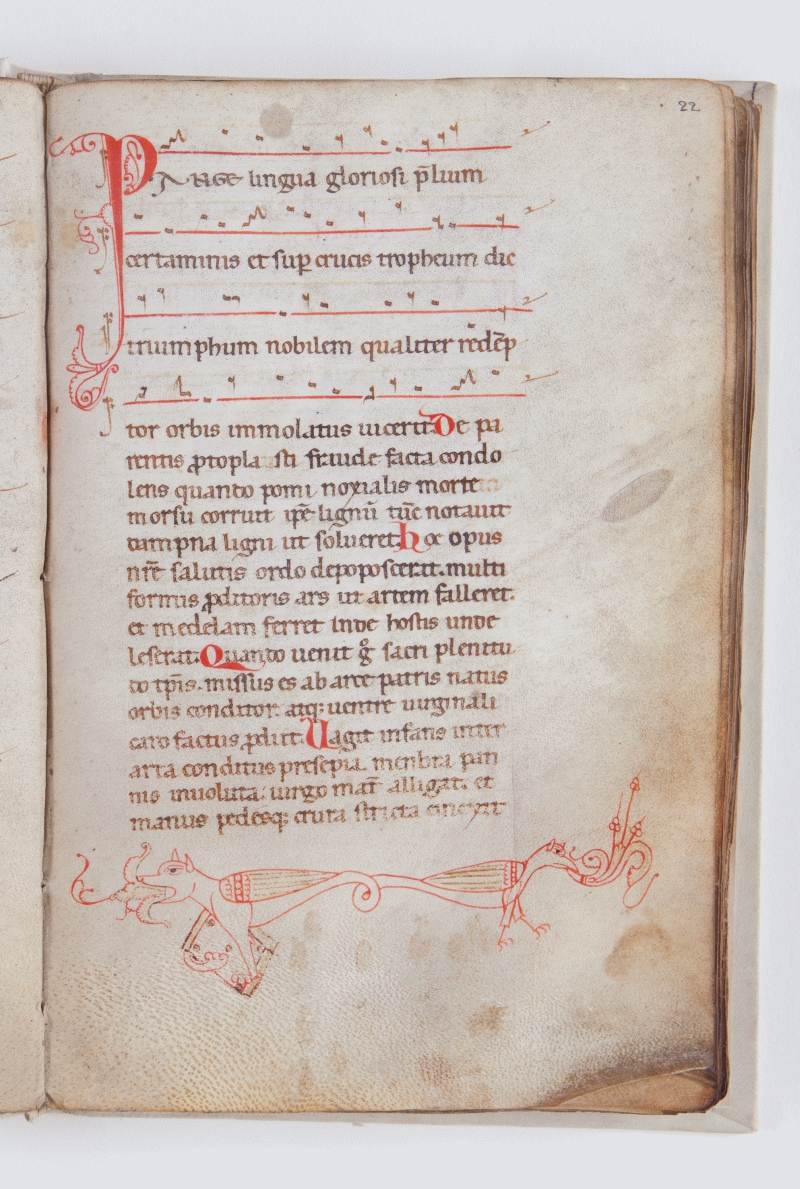 22
PANGE lingua gloriosi p̄lium
certaminis et sup̱ crucis tropheum dic
triumphum nobilem qualiter redēp
tor orbis immolatus uicerit. De pa
rentis ꝓtopla sti fraude facta condo
lens quando pomi noxialis morte
morsu corruit ip̄e lignū tūc notauit
dampna ligni ut solueret hoc opus
nr̄e salutis ordo depoposcerat. multi
formis ꝓditoris ars ut artem falleret.
et medelam ferret inde hostis unde
leserat. Quando uenit gͦ sacri plenitu
do tp̄is. missus es ab arce patris natus
orbis conditor. atq; uentre uirginali
caro factus ꝓdiit. Uagit infans inter
arta conditus presepia. menbra pan
nis inuoluta. uirgo mat̄ alligat. et
manus pedesq; crura stricta cinexit